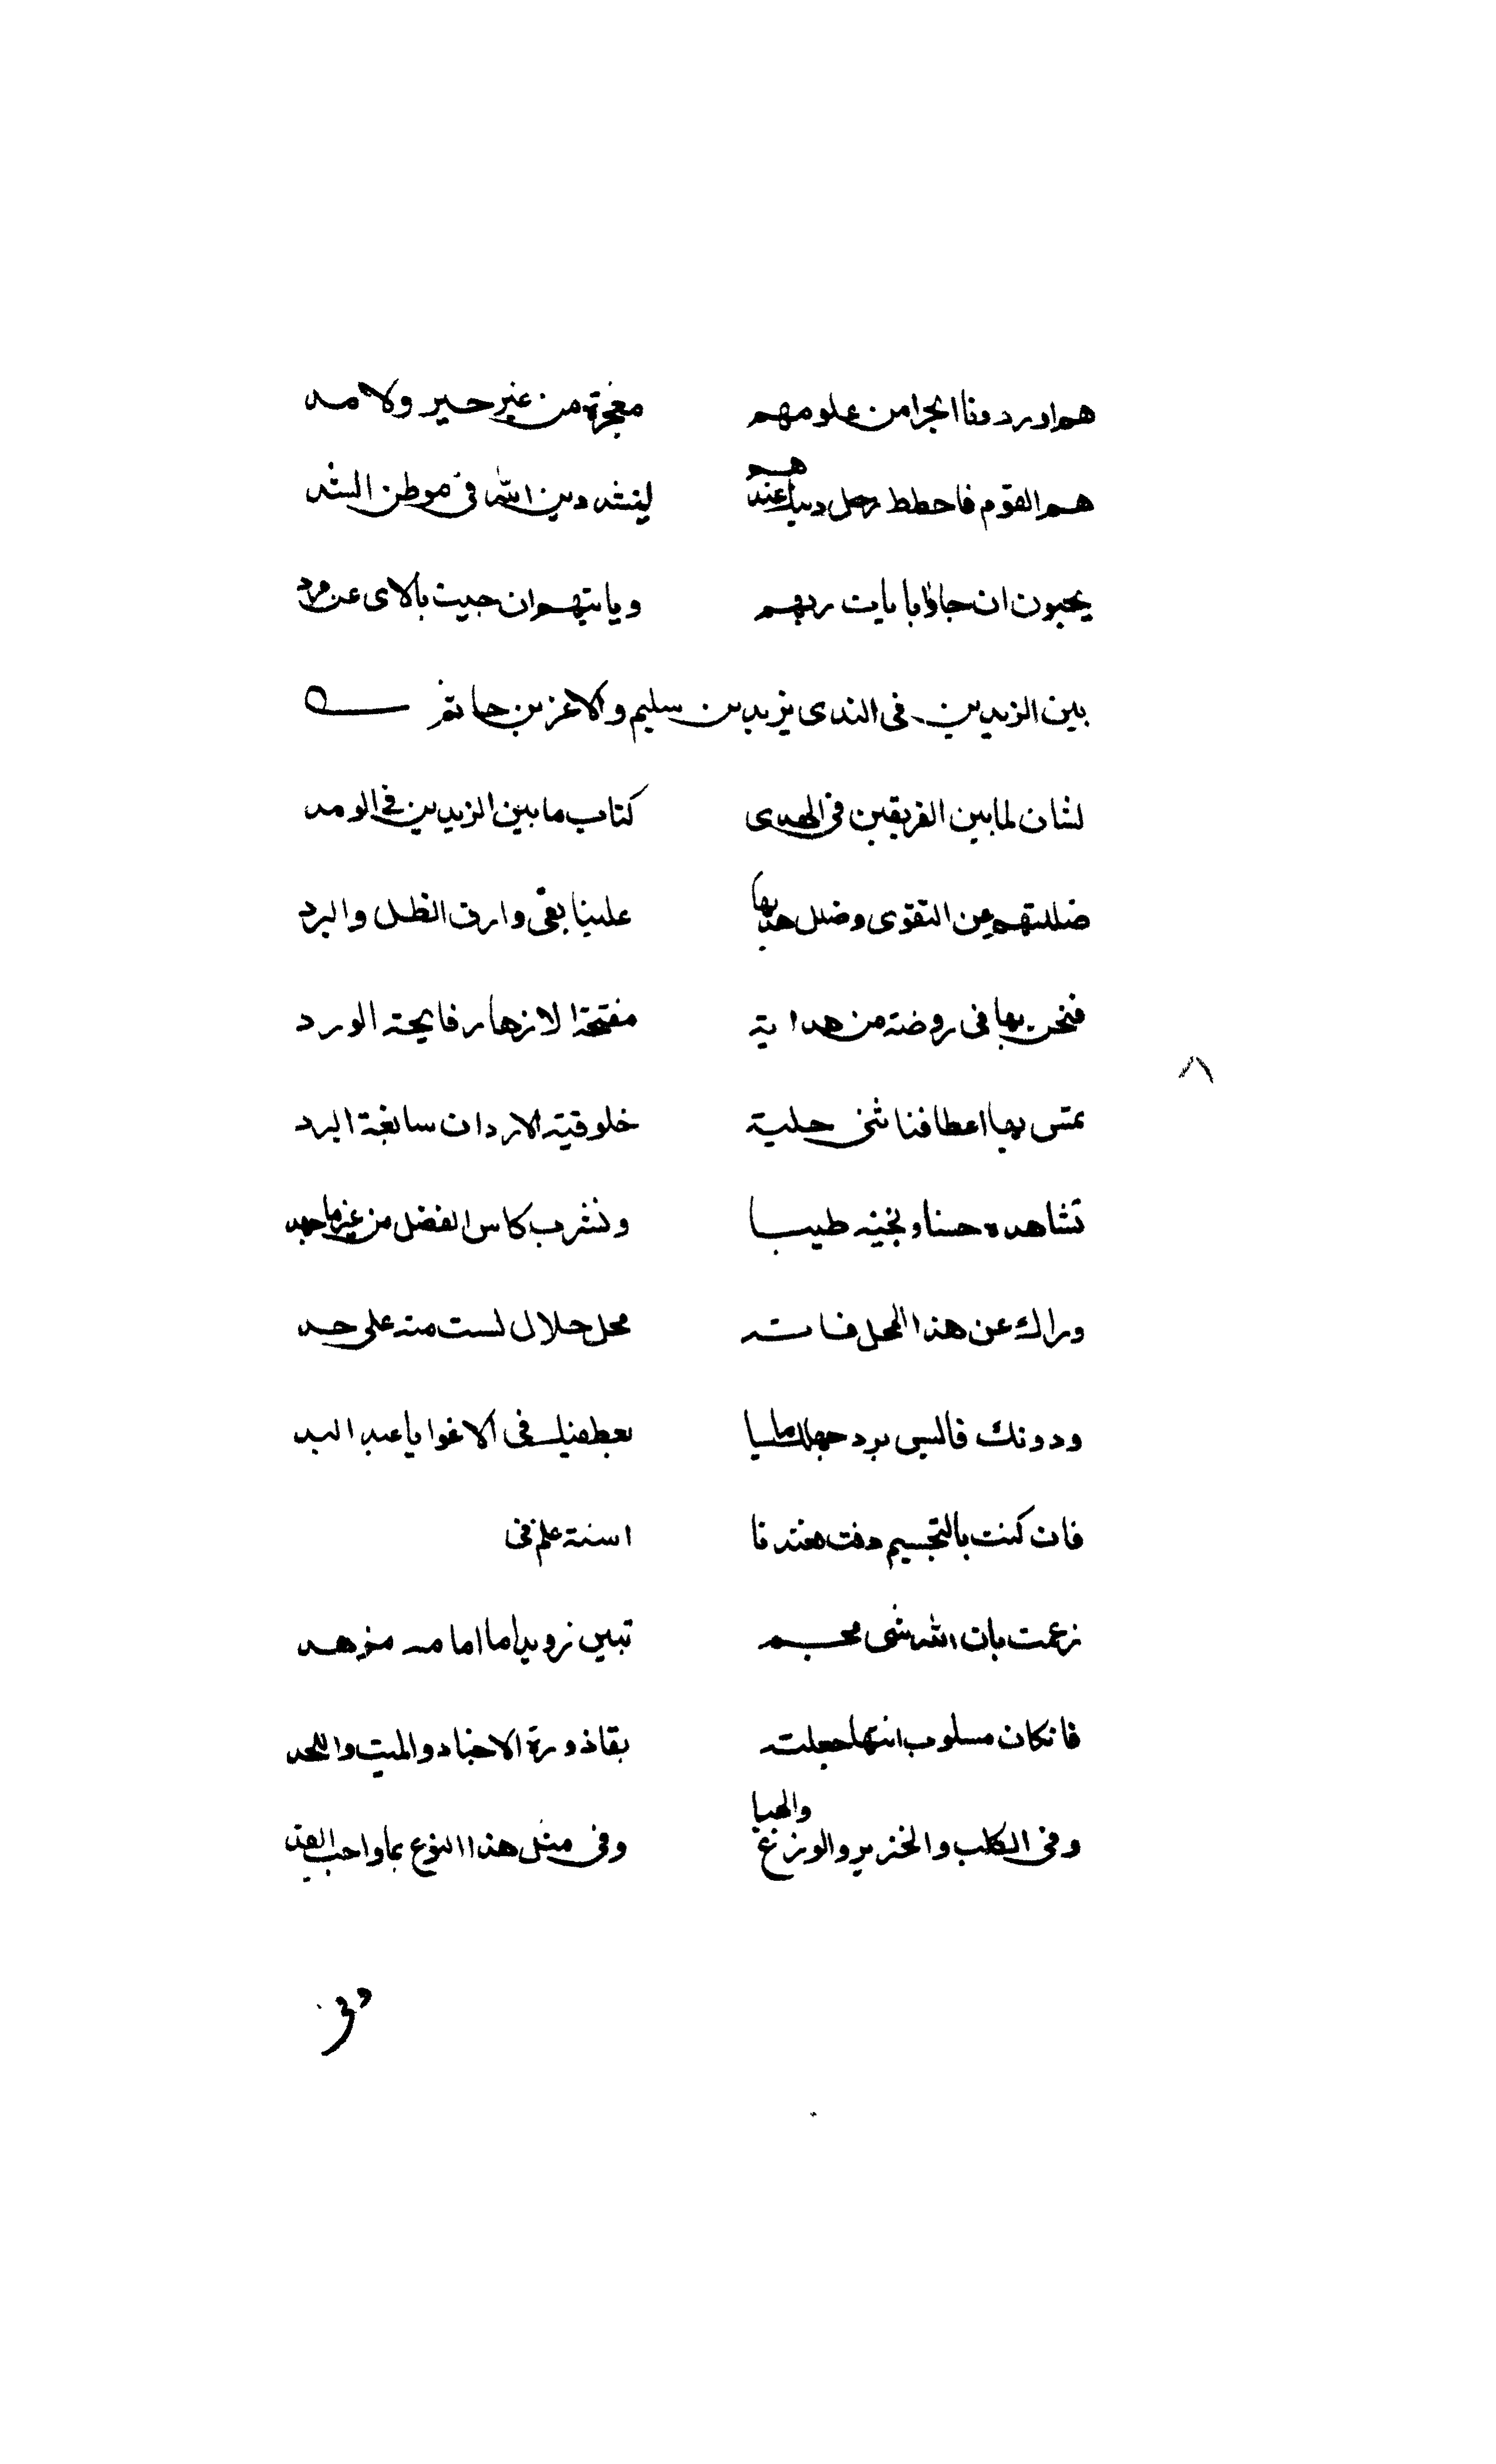 هم اوردونا ابحرا من علومهم معجزة من غير حسير ولا مد
هم القوم فاحطط رحل دنياك عندهم لينشد دين الله في موطن الشد
يحبون ان جاؤا بايات ربهم وياتيهم ان جيت بالاى عن
بين الزيدين في الندى يزيد بن سليم والاغر بن حاتم
لشان لما بين الفريقين في الهدى كتاب ما بين الزيدين في الو
ضللتهم عن التقوى وضلل هديها علينا بقى وارف الظل والبرد
فنحن بها في روضة من هداية مفتحة الازهار فايحة الورد
تمس بها اعطافنا ثنى حلية خلوقية الاردان سابغة البرد
تشاهده حسنا ونجنيه طيبا ونشرب كاس الفضل من غير ما جهد
وراك عن هذا المحل فانه محل حلال لست منه على حد
ودونك فالبس برد جهلك ماسيا بعطفيك في الاغوا يا عبد العبد
فان كنت بالتجسيم دنت فعندنا اسنة علم في
زعمت بان الله شى مجسم تبين رويدا ما امامه من هد
فان كان مسلوب انتها جعلته بقاذورة الاجناد والميت واللحد
وفى الكلب والخنزير والوزغ والهبا وفى مثل هذا النوع يا واجب
وفى